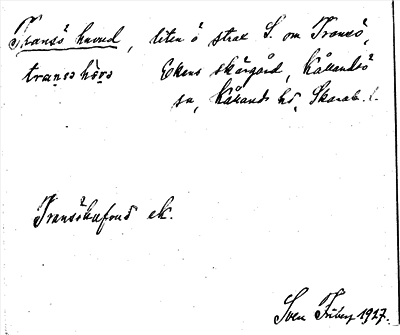 Transö huvud, liten ö strax S. om Tranö,
Ekens skärgård, Kållandsö
sn, Kållands hd, Skarab. l.
Tranöhufvud ek.
Sven Friberg 1927.